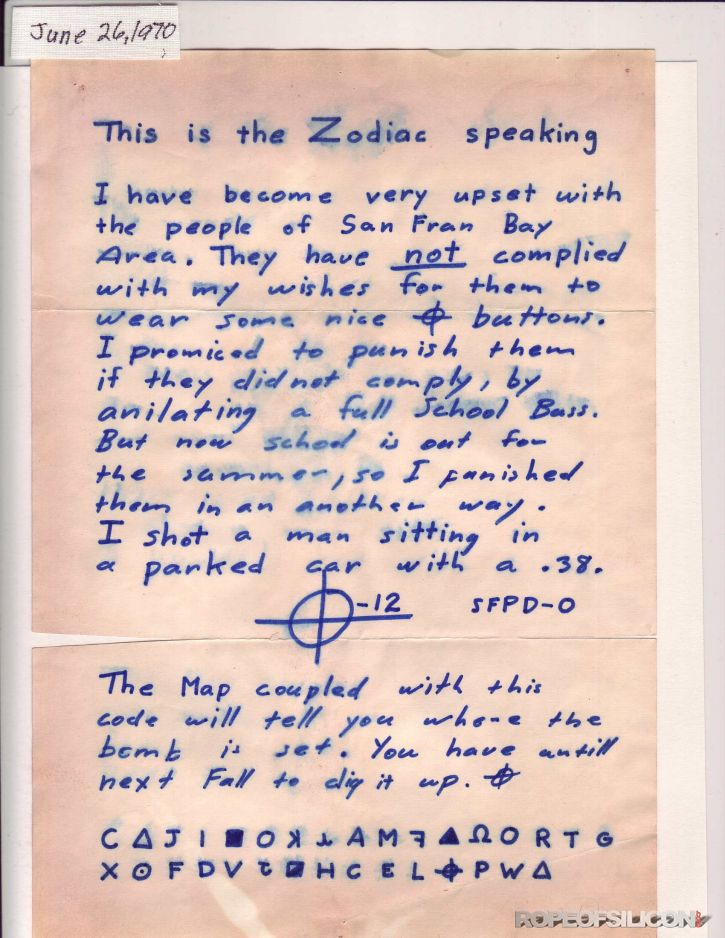 June 26, 1970
This is the Zodiac speaking
I have become very upset with
the people of San Fran Bay
Area. They have not complied
with my wishes for them to
wear some nice ⌖ buttons.
I promiced to punish them
if they did not comply, by
anilating a full School Buss.
But now school is out for
the summer, so I punished
them in an another way.
I shot a man sitting in
a parked car with a .38.
⌖-12 SFPD-0
The Map coupled with this
code will tell you where the
bomb is set. You have untill
next Fall to dig it up. ⌖
C Δ J I ■ O ꓘ ⅄ A M ꟻ ▲ Ω O R T G
X ⊙ F D V Ƨ ◪ H C E L ⌖ P W Δ
ROPEOFSILICON